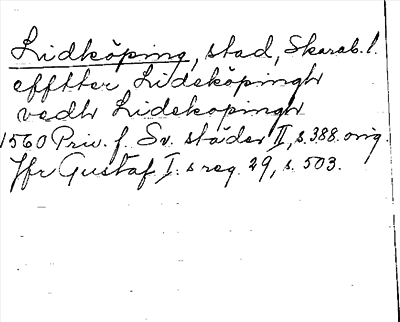 Lidköping, stad, Skarab. l.
efftter Lideköpingh
vedh Lidekopingh
1560 Priv. f. Sv. städer II, s. 388. orig.
Jfr Gustaf I. s reg. 29, s. 503.